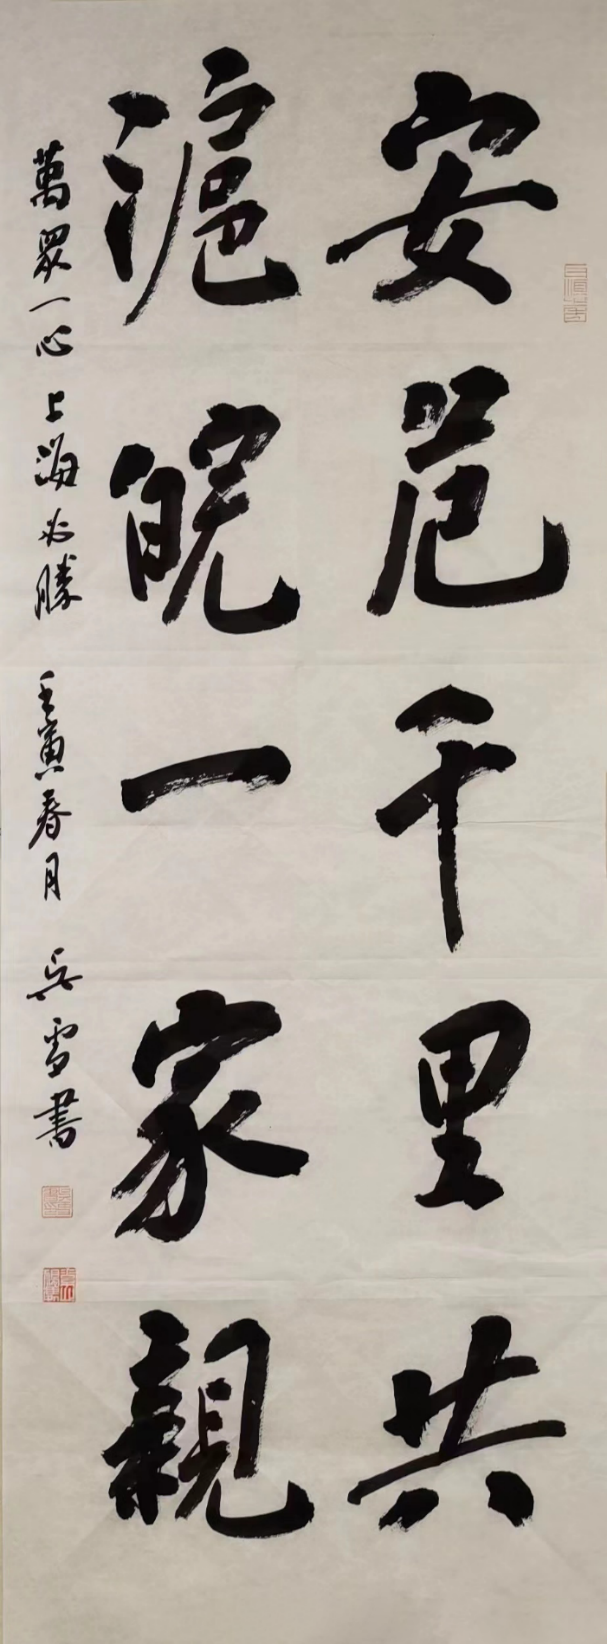 安危千里共
滬皖一家親
萬眾一心 上海必勝 壬寅春月 吳雪書